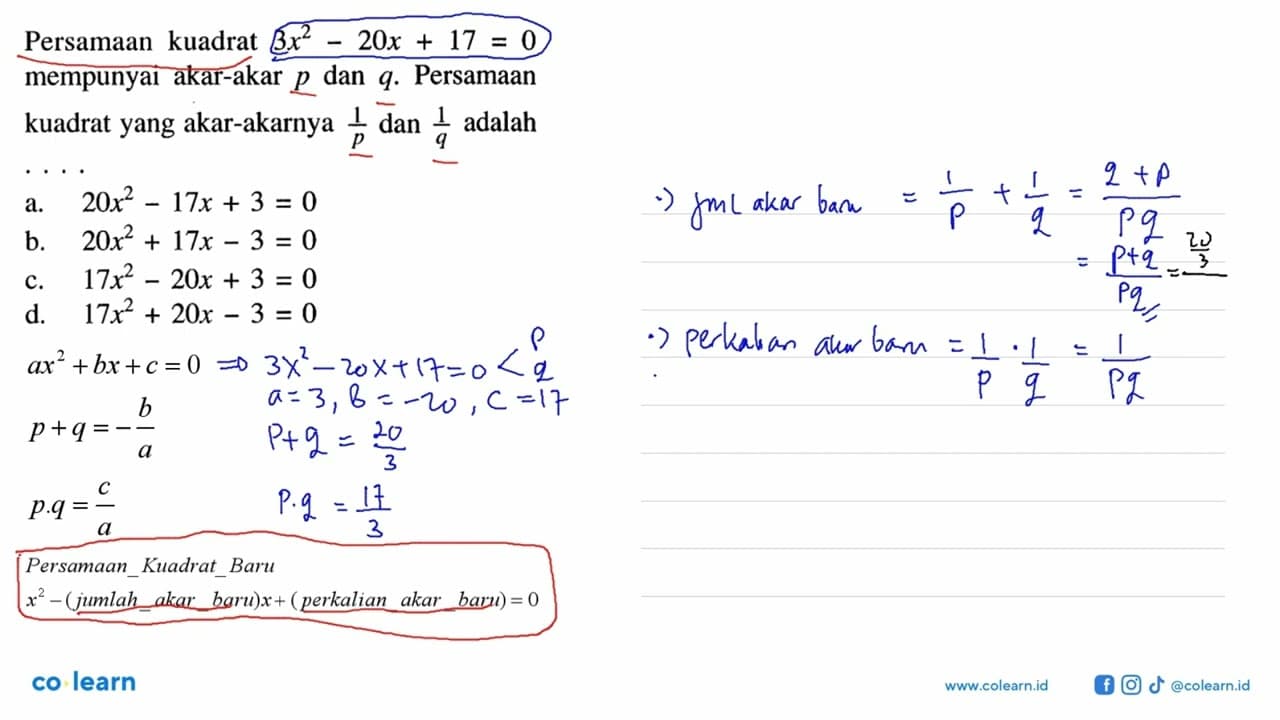 Persamaan kuadrat 3x² − 20x + 17 = 0
mempunyai akar-akar p dan q. Persamaan
kuadrat yang akar-akarnya 1/p dan 1/q adalah
. . . .
a. 20x² − 17x + 3 = 0
b. 20x² + 17x − 3 = 0
c. 17x² − 20x + 3 = 0
d. 17x² + 20x − 3 = 0
ax² + bx + c = 0 ⇒ 3x² − 20x + 17 = 0 < p q
a = 3, b = −20, c = 17
p + q = −b/a
p + q = 20/3
p.q = c/a
p.q = 17/3
Persamaan_Kuadrat_Baru
x² − (jumlah_akar_baru)x + (perkalian_akar_baru) = 0
·) jml akar baru = 1/p + 1/q = q + p / pq
= p+q / pq = 20/3
·) perkalian akar baru = 1/p · 1/q = 1/pq
co learn
www.colearn.id
@colearn.id